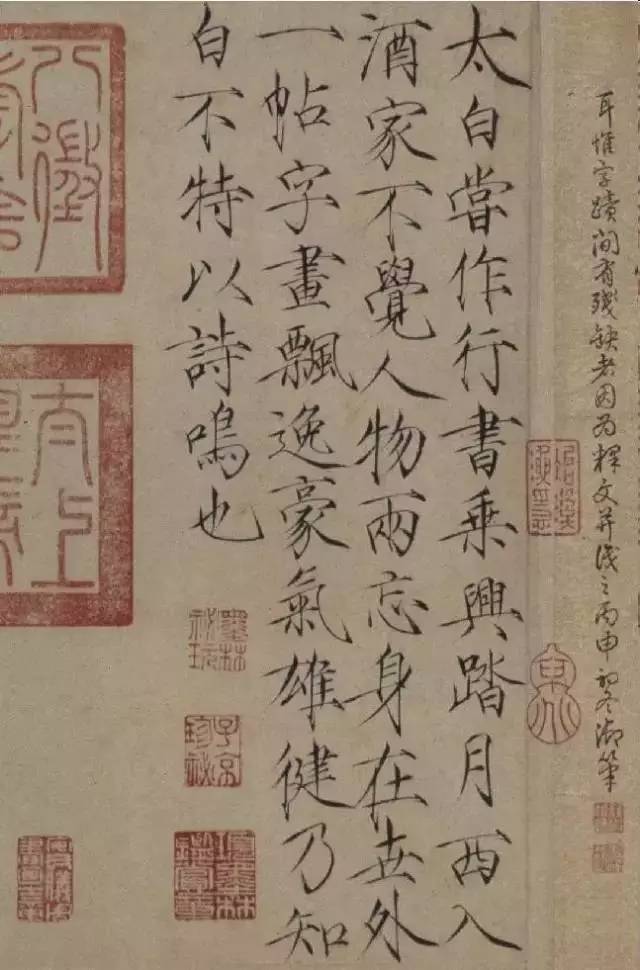 耳惟字蹟間有殘缺者因為釋文并識之丙申初冬御筆
太白嘗作行書乘興踏月西入
酒家不覺人物兩忘身在世外
一帖字畫飄逸豪氣雄健乃知
白不特以詩鳴也
墨林秘玩
子京珍秘
項墨林鑑賞章
太上
八徵